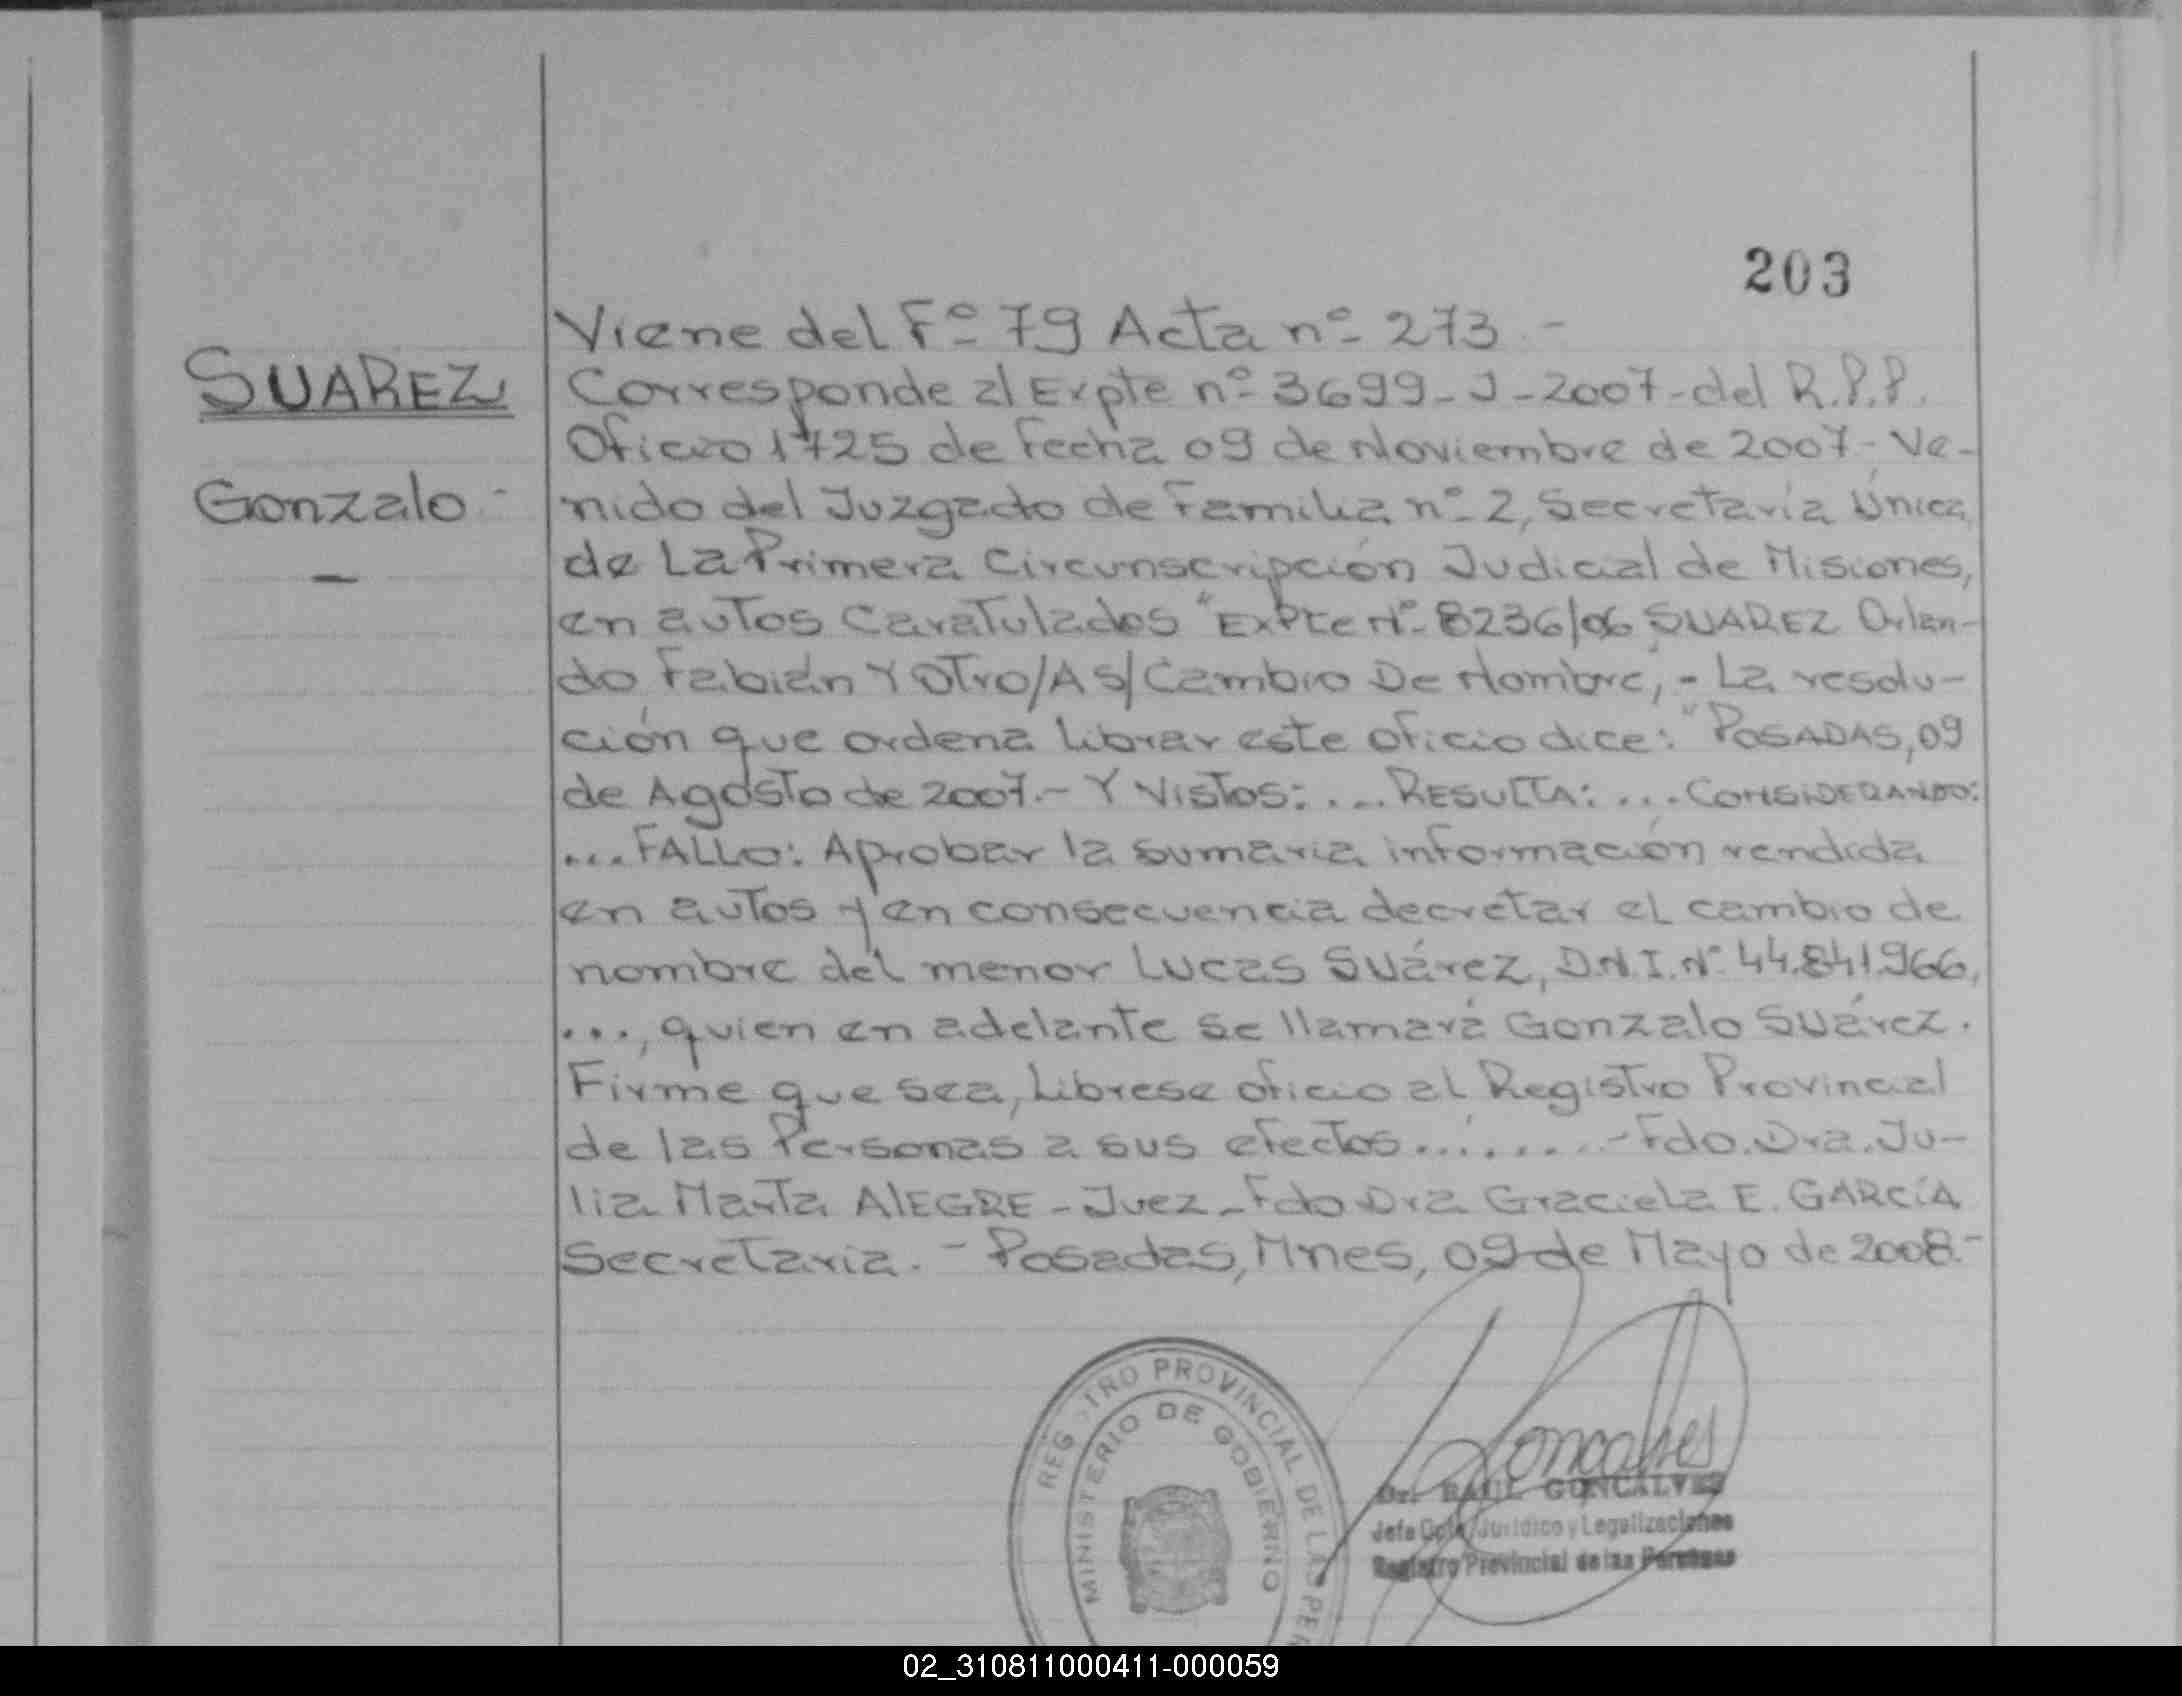 203
Viene del Fº 79 Acta nº 273.-
SUAREZ
Gonzalo -
Corresponde al Expte nº 3699-J-2007-del R.P.P.
Oficio 1725 de Fecha 09 de Noviembre de 2007- Ve-
nido del Juzgado de Familia nº 2, Secretaría Única
de La Primera Circunscripción Judicial de Misiones,
en autos Caratulados "Expte Nº 8236/06 SUAREZ Orlan-
do Fabián Y Otro/A S/Cambio De Nombre", - La resolu-
ción que ordena librar este oficio dice: "POSADAS, 09
de Agosto de 2007.- Y Vistos: ... RESULTA: ... CONSIDERANDO:
... FALLO: Aprobar la sumaria información rendida
en autos y en consecuencia decretar el cambio de
nombre del menor Lucas Suárez, D.N.I. Nº 44.841.966,
..., quien en adelante se llamará Gonzalo Suárez.
Firme que sea, Librese oficio al Registro Provincial
de las Personas a sus efectos.........-Fdo. Dra. Ju-
lia Marta ALEGRE - Juez - Fdo Dra Graciela E. GARCÍA
Secretaria. - Posadas, Mnes, 09 de Mayo de 2008.-
REGISTRO PROVINCIAL DE LAS PER
MINISTERIO DE GOBIERNO
Goncalves
Dr. RAUL GONCALVES
Jefe Dpto. Jurídico y Legalizaciones
Registro Provincial de las Personas
02_310811000411-000059